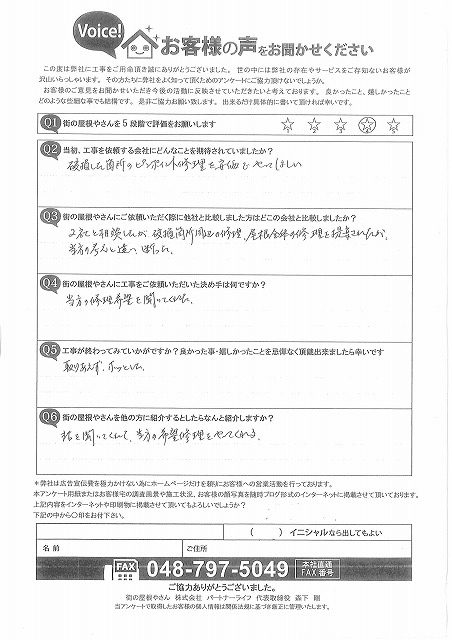 Voice!
お客様の声をお聞かせください
この度は弊社に工事をご用命頂き誠にありがとうございました。世の中には弊社の存在やサービスをご存知ないお客様が
沢山いらっしゃいます。その方たちに弊社をよく知って頂くためのアンケートにご協力頂けないでしょうか。
お客様のご意見をお聞かせいただき今後の活動に反映させていただきたいと考えております。良かったこと、嬉しかったこと
どのような些細な事でも結構です。是非ご協力お願い致します。出来るだけ具体的に書いて頂ければ幸いです。
Q1 街の屋根やさんを5段階で評価をお願いします
1 2 3 4 5
Q2 当初、工事を依頼する会社にどんなことを期待されていましたか?
破損した箇所のピンポイント修理を安価でやってほしい
Q3 街の屋根やさんにご依頼いただく際に他社と比較しました方はどこの会社と比較しましたか?
2社と相談したが、破損箇所周辺の修理、屋根全体の修理を提案されたが、
当方の考えと違い、断った。
Q4 街の屋根やさんに工事をご依頼いただいた決め手は何ですか?
当方の修理希望を聞いてくれた。
Q5 工事が終わってみていかがですか?良かった事・嬉しかったことを忌憚なく頂戴出来ましたら幸いです
取りあえず、ホッとした。
Q6 街の屋根やさんを他の方に紹介するとしたらなんと紹介しますか?
話を聞いてくれて、当方の希望修理をやってくれる。
*弊社は広告宣伝費を極力かけない為にホームページだけを頼りにお客様への営業活動を行っております。
本アンケート用紙またはお客様宅の調査風景や施工状況、お客様の顔写真を随時ブログ形式のインターネットに掲載させて頂いております。
上記内容をインターネットや印刷物に掲載させて頂いてもよろしいでしょうか?
下記の中から○印をお付下さい。
( ) イニシャルなら出してもよい
名前 ご住所
FAX 048-797-5049 本社直通
FAX番号
ご協力ありがとうございました。
街の屋根やさん 株式会社 パートナーライフ 代表取締役 森下 剛
当アンケートで取得したお客様の個人情報は関係法規に基づき厳正に管理いたします。